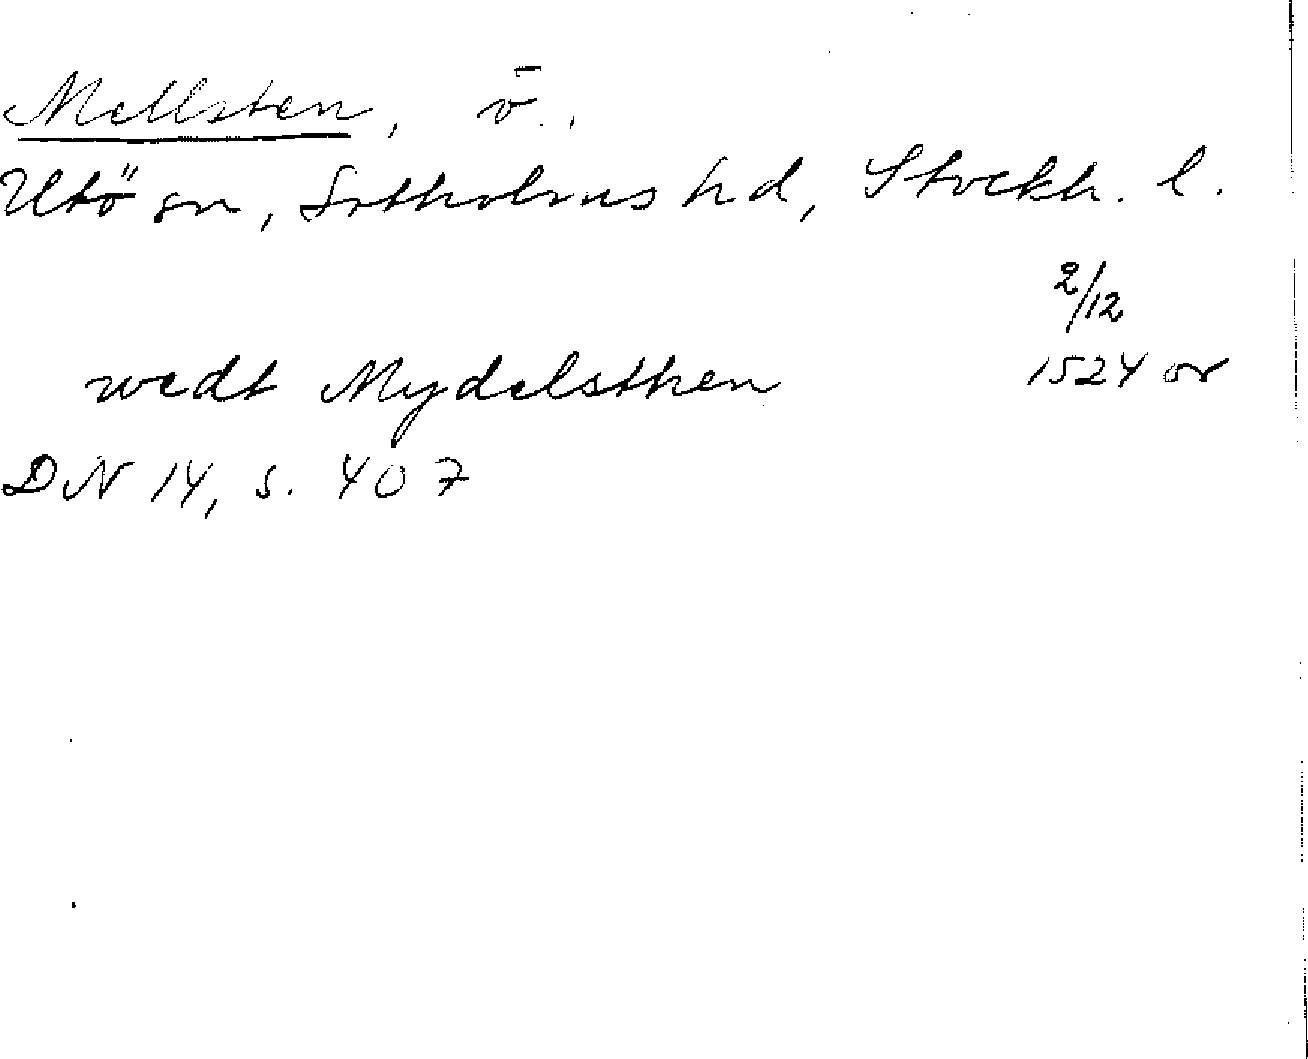 Mellsten, ö.,
Utö sn, Sotholms hd, Stockh. l.
2/12
wedt Mydelsthen 1524 or
DN 14, s. 407